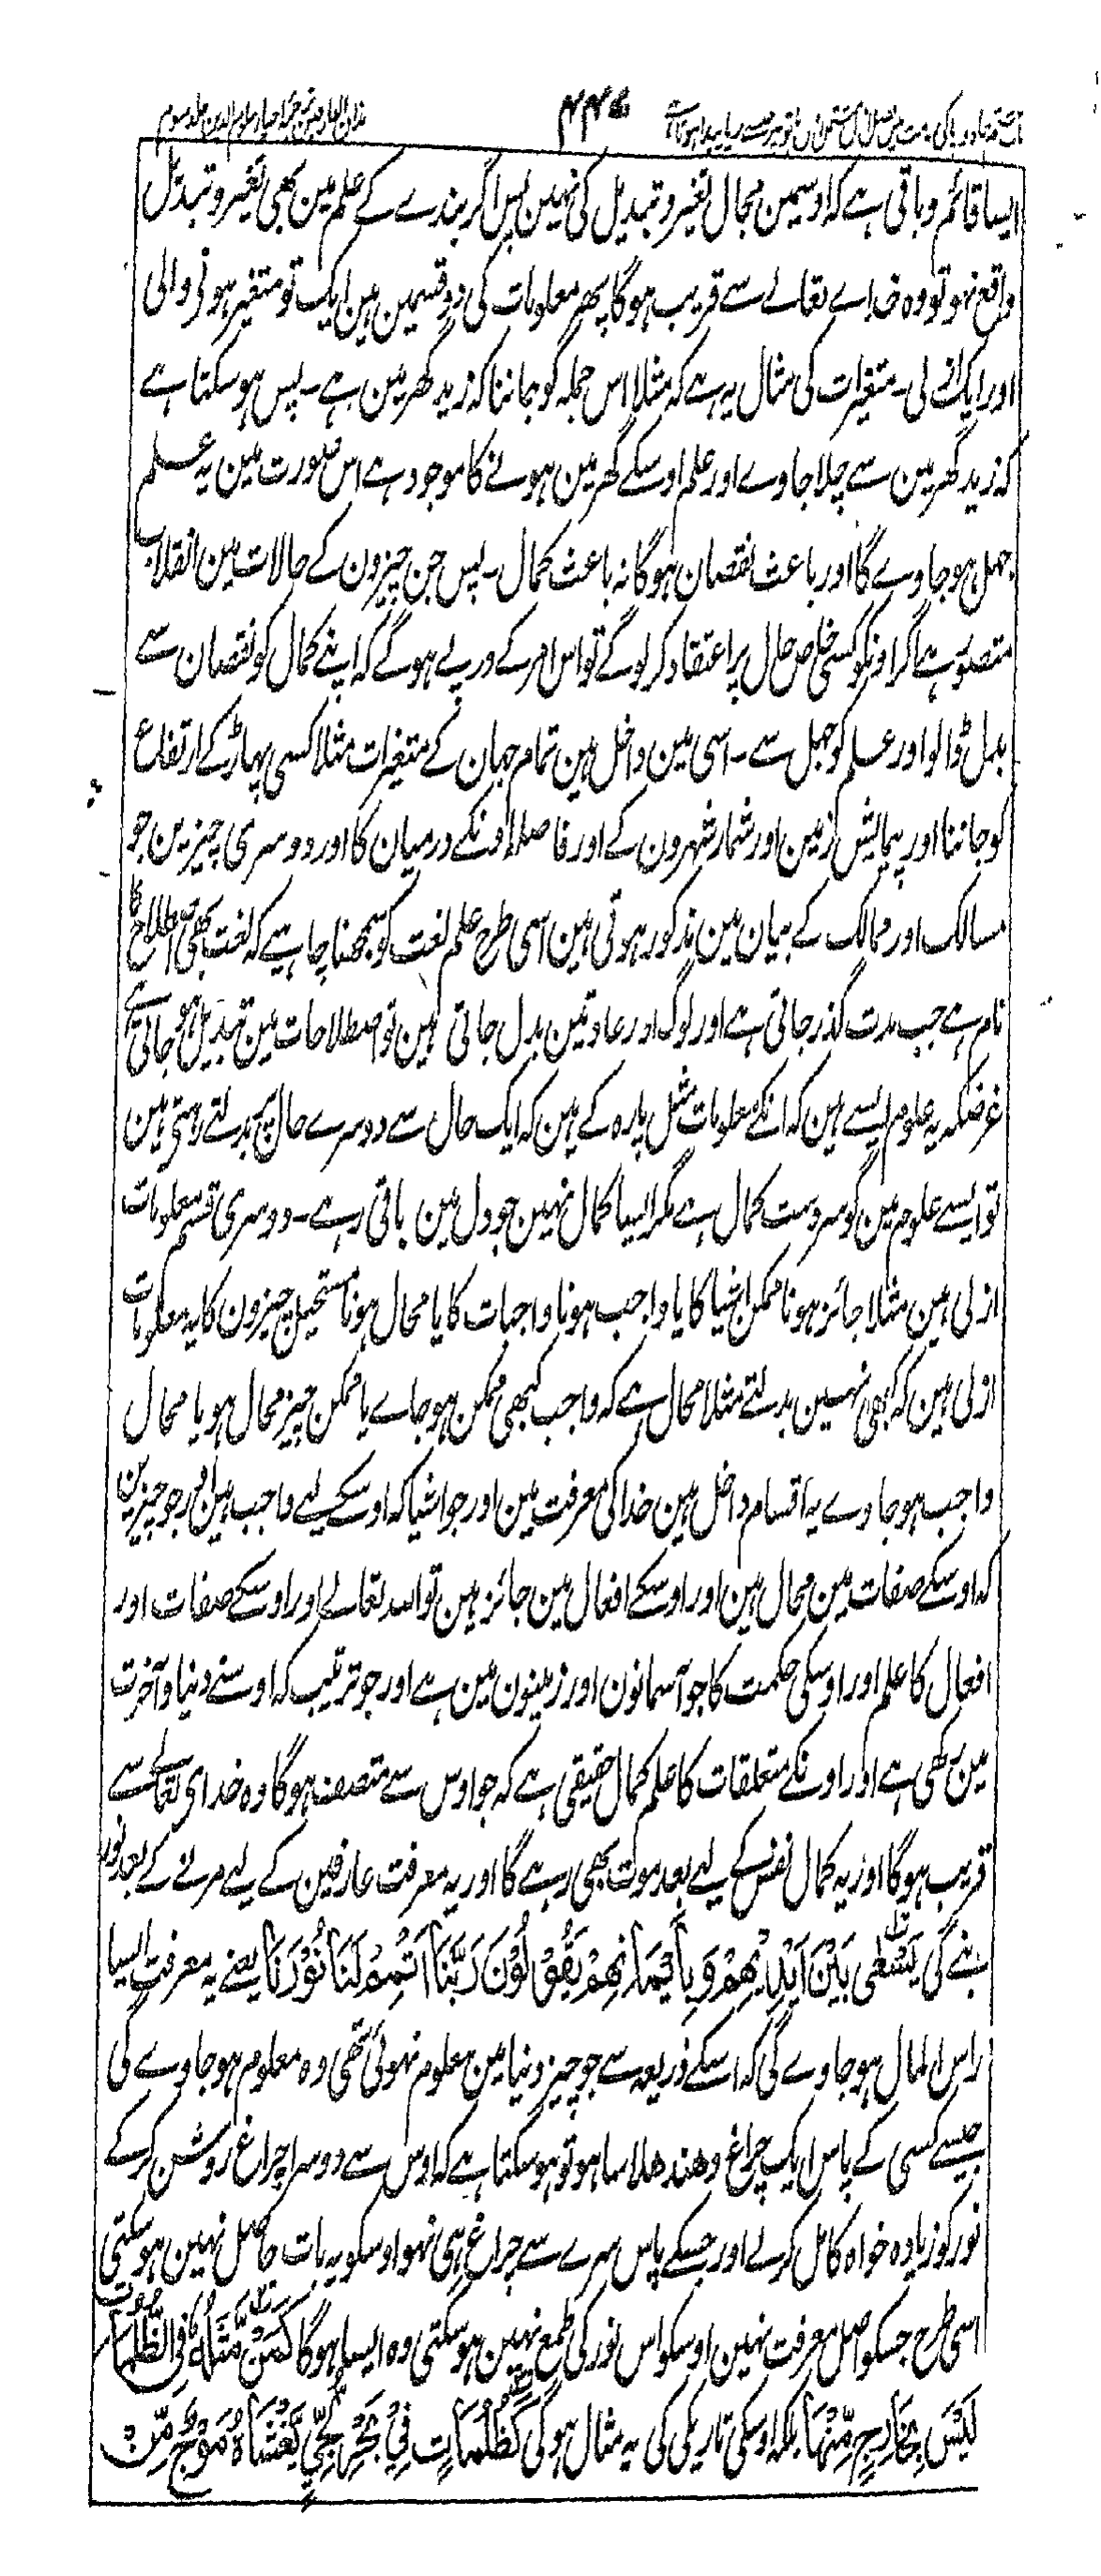 مذاق العارفین ترجمہ احیاء علوم الدین جلد سوم
۴۴۷
ایسا قائم و باقی ہے کہ اوسمین مجال تغیر و تبدیل کی نہین پس اگر بندے کے علم مین بھی تغیر و تبدل
واقع نہو تو وہ خداے تعالےٰ سے قریب ہوگا پھر معلومات کی دو قسمین ہین ایک تو متغیر ہونی والی
اور ایک ازلی ۔ متغیرات کی مثال یہ ہے کہ مثلا اس جملہ کو جاننا کہ زید گھر مین ہے ۔ پس ہو سکتا ہے
کہ زید گھر مین سے چلا جاوے اور علم اوسکے گھر مین ہونے کا موجود ہے اس صورت مین یہ علم
جہل ہو جاوے گا اور باعث نقصان ہوگا نہ باعث کمال ۔ پس جن چیزون کے حالات مین انقلاب
متصور ہے اگر اونکو کسی خاص حال پر اعتقاد کر لوگے تو اس امر کے درپے ہوگے کہ اپنے کمال کو نقصان سے
بدل ڈالو اور علم کو جہل سے ۔ اسی مین داخل ہین تمام جہان کے متغیرات مثلا کسی پہاڑ کے ارتفاع
کو جاننا اور پیمایش زمین اور شمار شہرون کے اور فاصلہ اونکے درمیان کا اور دوسری چیزین جو
مسالک اور ممالک کے بیان مین مذکور ہوتی ہین اسی طرح علم لغت کو سمجھنا چاہیے کہ لغت بھی اصطلاح کا
نام ہے جب مدت گذر جاتی ہے اور لوگ اور عادتین بدل جاتی ہین تو اصطلاحات مین تبدیل ہو جاتی ہے
غرضکہ یہ علوم ایسے ہین کہ انکے معلومات مثل پارہ کے ہین کہ ایک حال سے دوسرے حال پر بدلتے رہتی ہین
تو ایسے علوم مین گو سردست کمال ہے مگر ایسا کمال نہین جو دل مین باقی رہے ۔ دوسری قسم معلومات
ازلی ہین مثلا جائز ہونا ممکن اشیا کا یا واجب ہونا واجبات کا یا محال ہونا مستحیل چیزون کا یہ معلومات
ازلی ہین کہ کبھی نہین بدلتے مثلا محال ہے کہ واجب کبھی ممکن ہو جاے یا ممکن چیز محال ہو یا محال
واجب ہو جاوے یہ اقسام داخل ہین خدا کی معرفت مین اور جو اشیا کہ اوسکے لیے واجب ہین اور جو چیزین
کہ اوسکے صفات مین محال ہین اور اوسکے افعال مین جائز ہین تو اللہ تعالےٰ اور اوسکے صفات اور
افعال کا علم اور اوسکی حکمت کا جو آسمانون اور زمینون مین ہے اور جو ترتیب کہ اوسنے دنیا و آخرت
مین رکھی ہے اور اونکے متعلقات کا علم کمال حقیقی ہے کہ جو اوس سے متصف ہوگا وہ خدای تعالےٰ سے
قریب ہوگا اور یہ کمال نفس کے لیے بعد موت بھی رہے گا اور یہ معرفت عارفین کے لیے مرنے کے بعد نور
بنے گی یَسْعٰی بَیْنَ اَیْدِیْہِمْ وَ بِاَیْمَانِہِمْ یَقُوْلُوْنَ رَبَّنَا اَتْمِمْ لَنَا نُوْرَنَا یعنے یہ معرفت ایسا
راس المال ہو جاوے گی کہ اسکے ذریعہ سے جو چیز دنیا مین معلوم نہوئی تھی وہ معلوم ہو جاوے گی
جیسے کسی کے پاس ایک چراغ دھندھلا سا ہو تو ہو سکتا ہے کہ اوس سے دوسرا چراغ روشن کر کے
نور کو زیادہ خواہ کامل کرلے اور جسکے پاس سرے سے چراغ ہی نہو اوسکو یہ بات حاصل نہین ہو سکتی
اسی طرح جسکو اصل معرفت نہین اوسکو اس نور کی طمع نہین ہو سکتی وہ ایسا ہوگا کَمَنْ مَّثَلُہٗ فِی الظُّلُمَاتِ
لَیْسَ بِخَارِجٍ مِّنْہَا بلکہ اوسکی تاریکی کی یہ مثال ہوگی کَظُلُمَاتٍ فِیْ بَحْرٍ لُّجِّیٍّ یَّغْشَاہُ مَوْجٌ مِّنْ